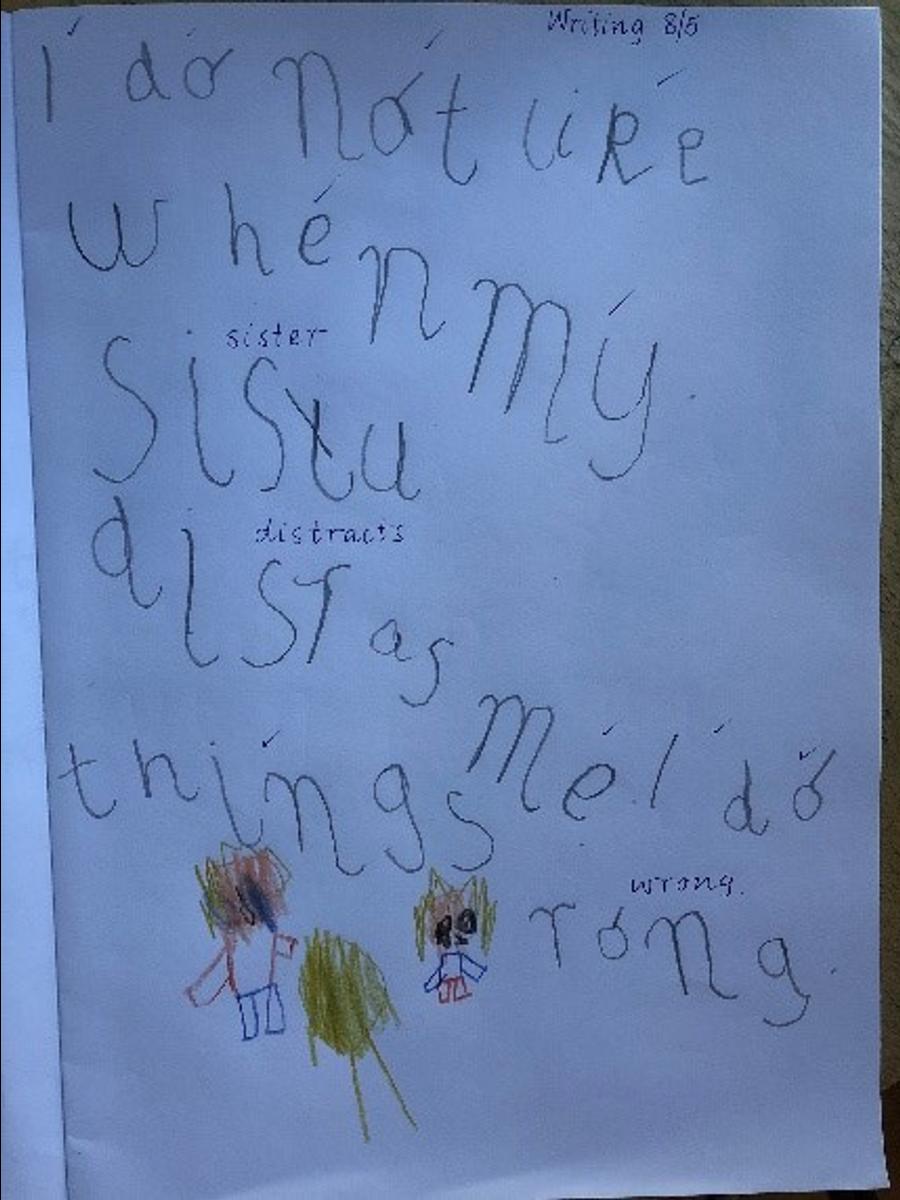 Writing 8/5
i do not like
when my.
sister
sistu
distracts
distas
me. i do
things
wrong.
rong.